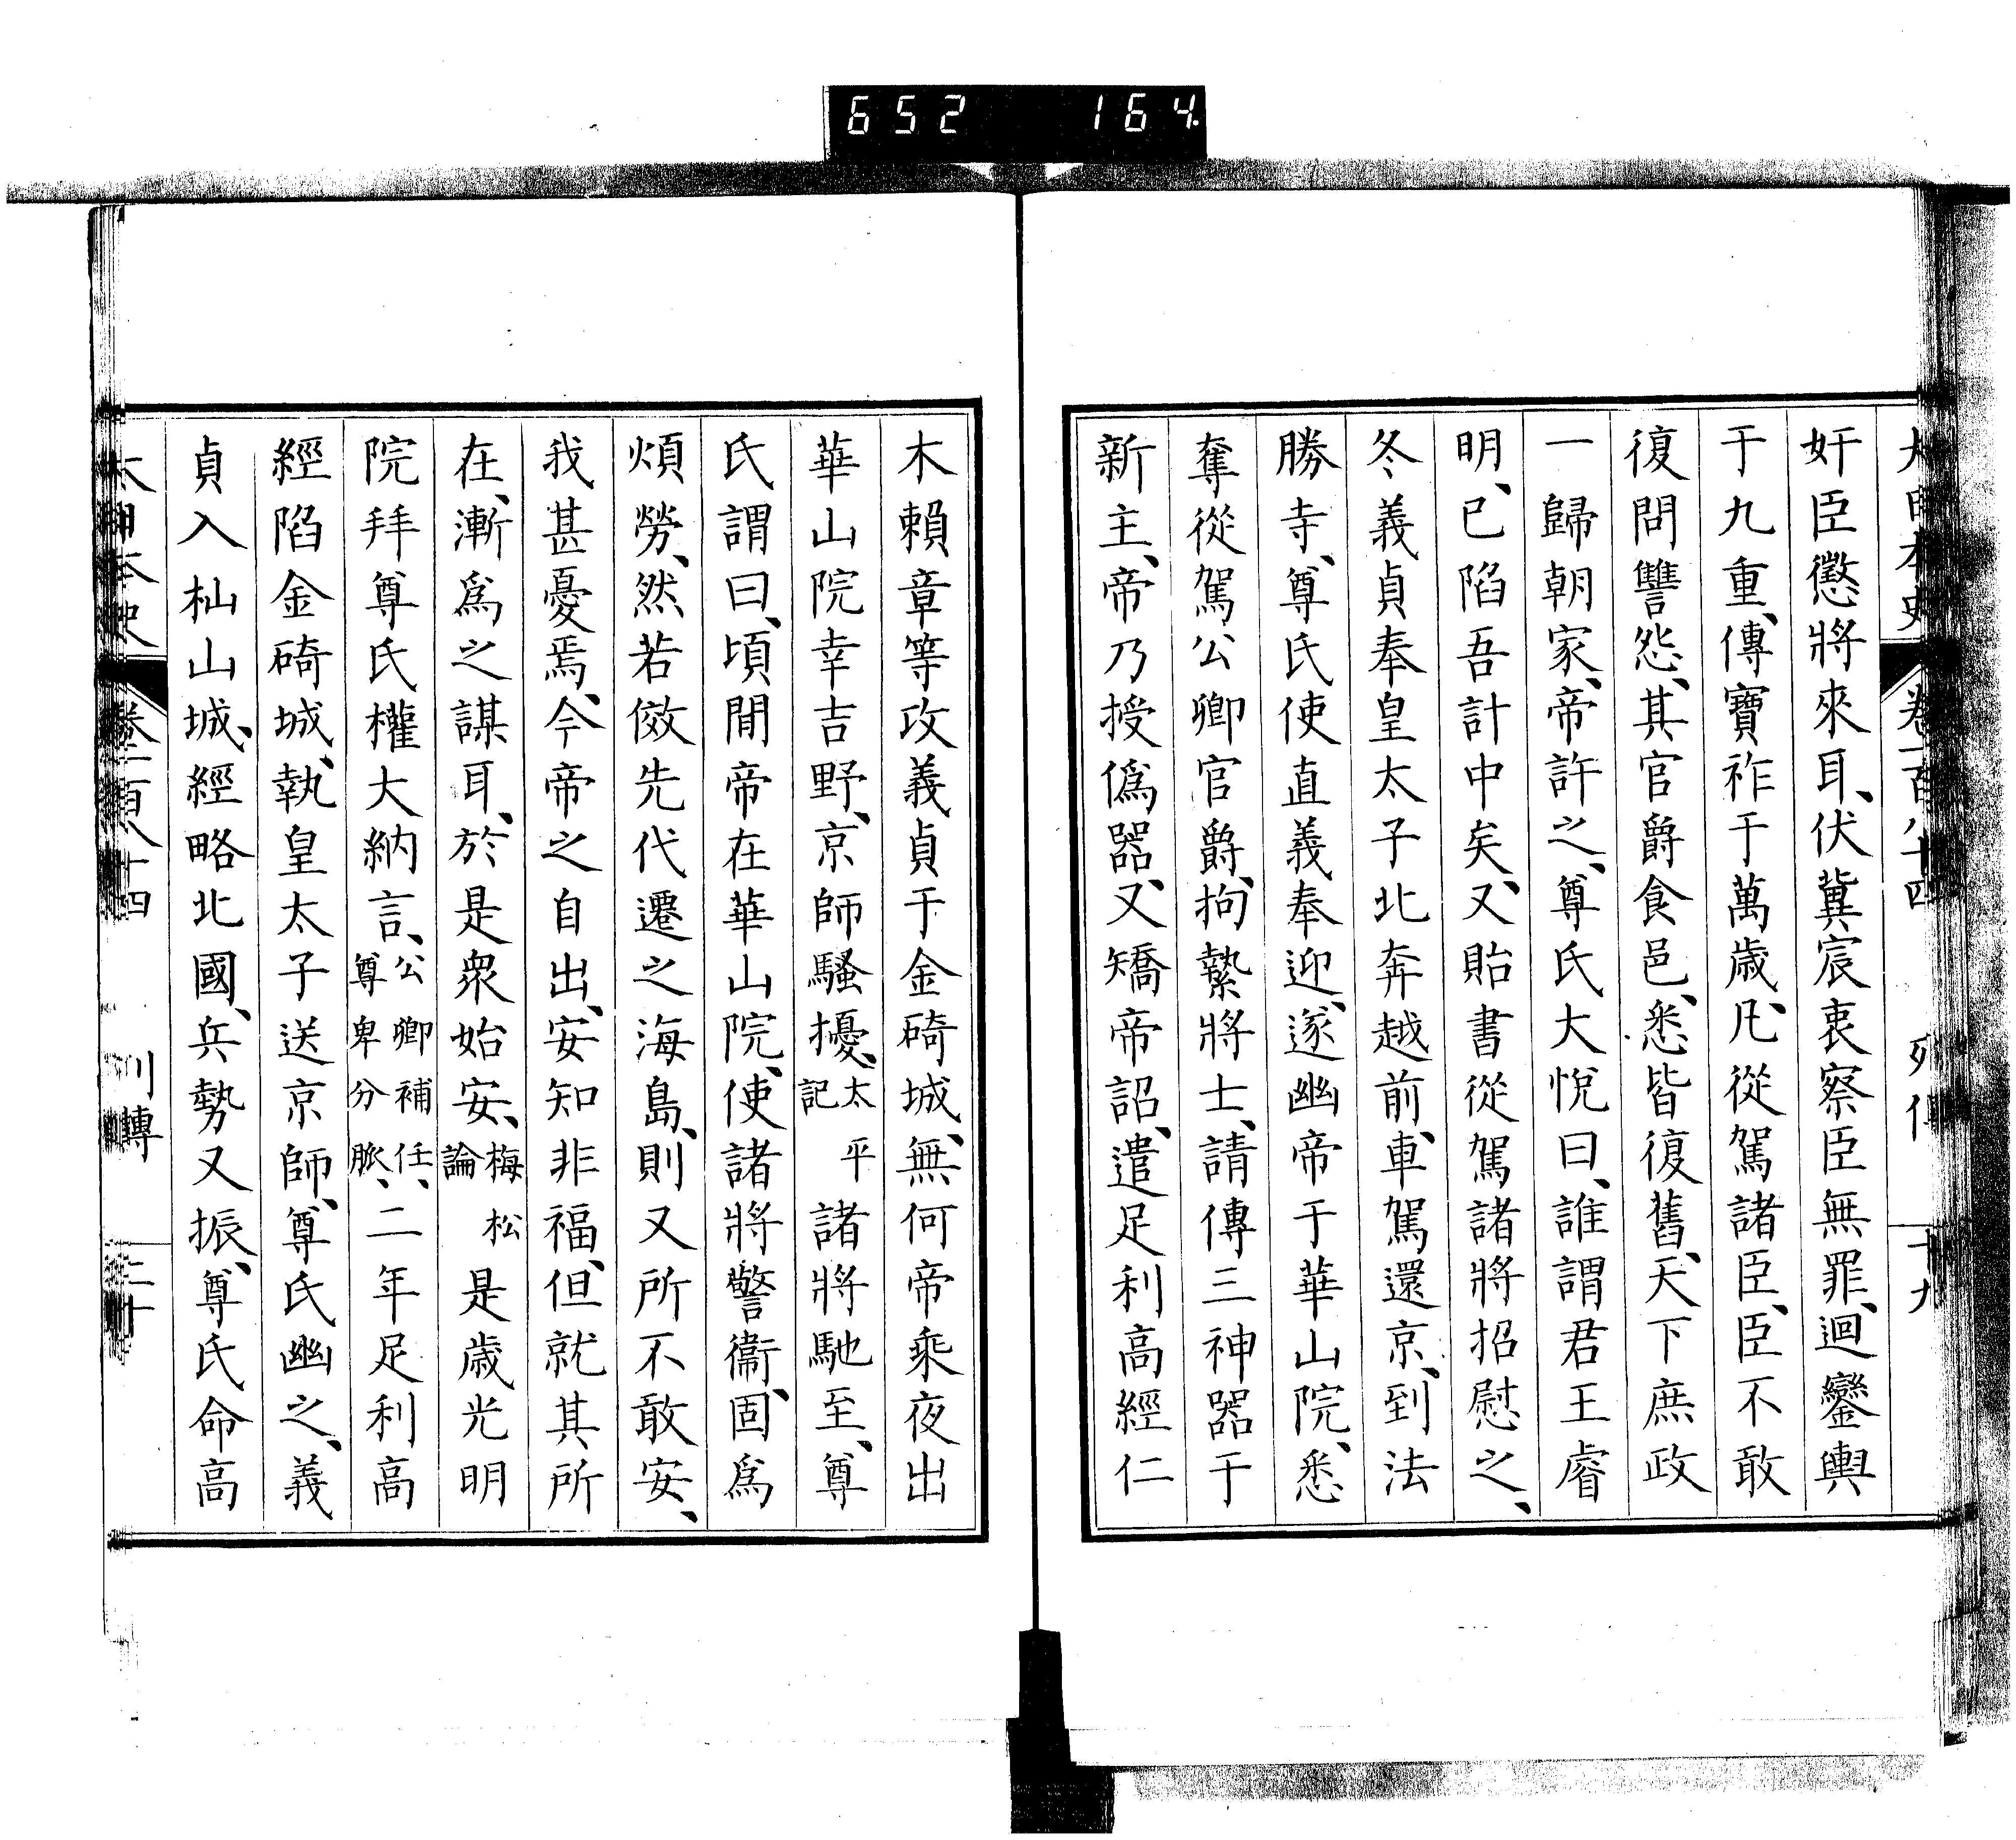 652 164
大日本史 卷一百八十四 列傳 十九
奸臣懲將來耳、伏冀宸衷察臣無罪、迴鑾輿
于九重、傳寶祚于萬歳、凡從駕諸臣、臣不敢
復問讐怨、其官爵食邑、悉皆復舊、天下庶政
一歸朝家、帝許之、尊氏大悅曰、誰謂君王睿
明、已陷吾計中矣、又貽書從駕諸將招慰之、
冬義貞奉皇太子北奔越前、車駕還京、到法
勝寺、尊氏使直義奉迎、遂幽帝于華山院、悉
奪從駕公卿官爵、拘縶將士、請傳三神器于
新主、帝乃授僞器、又矯帝詔、遣足利高經仁
木賴章等攻義貞于金碕城、無何帝乘夜出
華山院幸吉野、京師騷擾、太平記諸將馳至、尊
氏謂曰、頃間帝在華山院、使諸將警衞、固爲
煩勞、然若傚先代遷之海島、則又所不敢安、
我甚憂焉、今帝之自出、安知非福、但就其所
在、漸爲之謀耳、於是衆始安、梅松論是歳光明
院拜尊氏權大納言、公卿補任、尊卑分脈、二年足利高
經陷金碕城、執皇太子送京師、尊氏幽之、義
貞入杣山城、經略北國、兵勢又振、尊氏命高
大日本史 卷一百八十四 列傳 二十